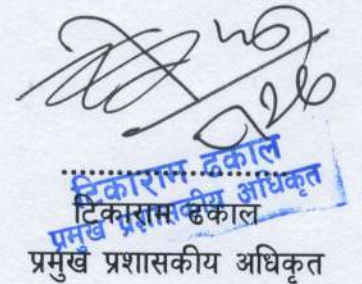 ..............................
टिकाराम ढकाल
प्रमुख प्रशासकीय अधिकृत
टिकाराम ढकाल
प्रमुख प्रशासकीय अधिकृत